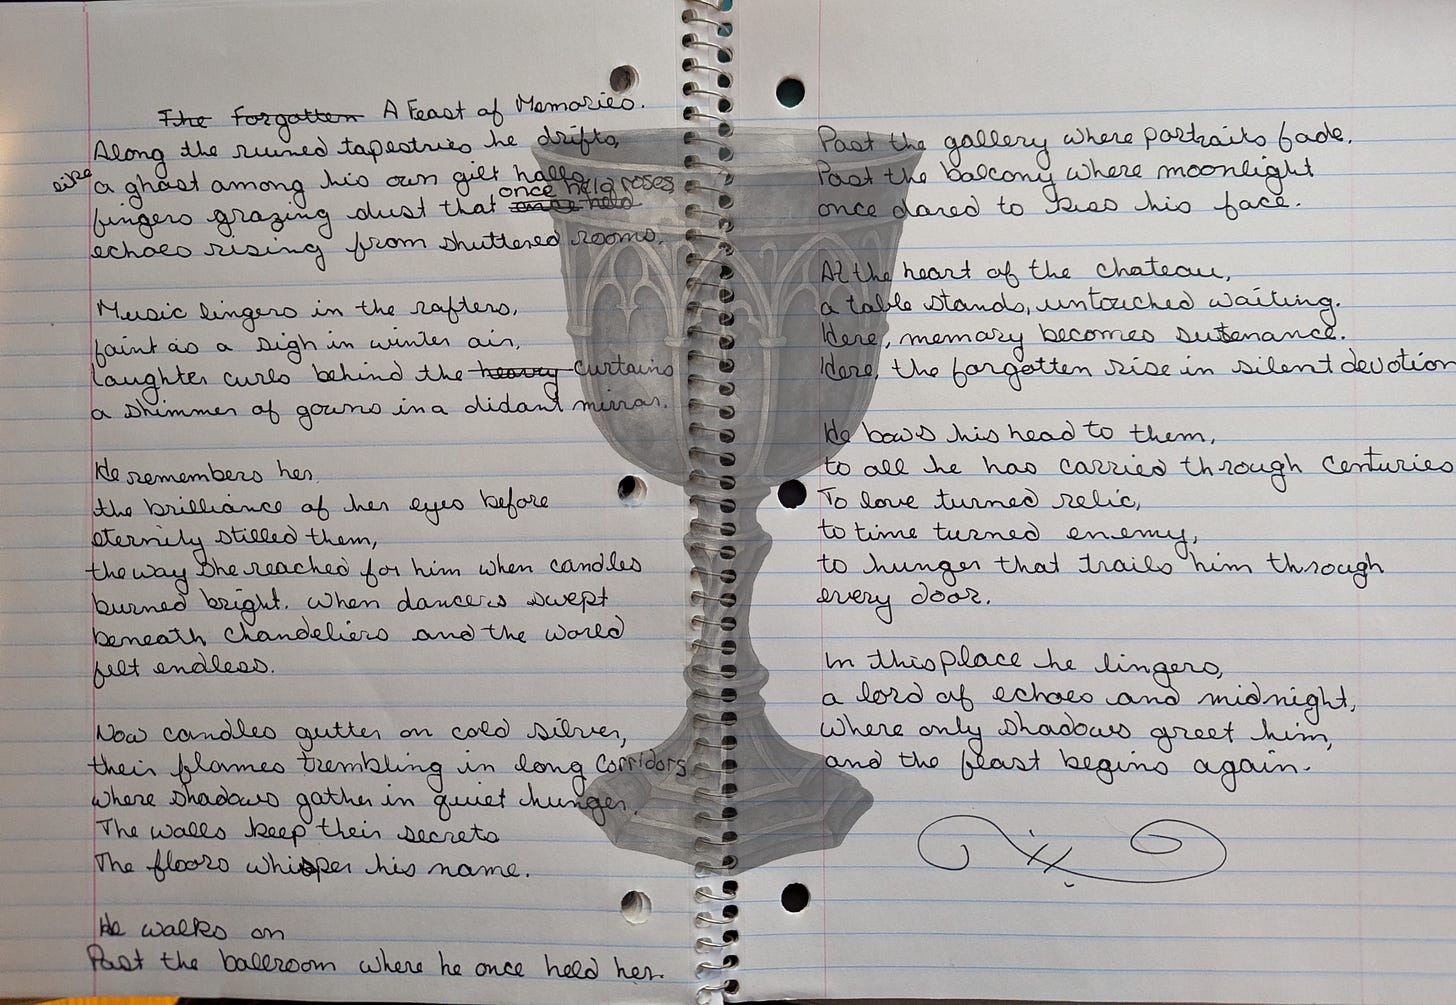 ~~The Forgotten~~ A Feast of Memories.
Along the ruined tapestries he drifts,
like a ghost among his own gilt halls
once held roses
fingers grazing dust that ~~once held~~
echoes rising from shuttered rooms.
Music lingers in the rafters,
faint as a sigh in winter air,
Laughter curls behind the ~~heavy~~ curtains
a shimmer of gowns in a distant mirror.
He remembers her
the brilliance of her eyes before
eternity stilled them,
the way she reached for him when candles
burned bright. When dancers swept
beneath chandeliers and the world
felt endless.
Now candles gutter on cold silver,
their flames trembling in long corridors
where shadows gather in quiet hunger.
The walls keep their secrets
The floors whisper his name.
He walks on
Past the ballroom where he once held her.
Past the gallery where portraits fade.
Past the balcony where moonlight
once dared to kiss his face.
At the heart of the chateau,
a table stands, untouched waiting.
Here, memory becomes sustenance.
Here, the forgotten rise in silent devotion
He bows his head to them,
to all he has carried through centuries
To love turned relic,
to time turned enemy,
to hunger that trails him through
every door.
In this place he lingers,
a lord of echoes and midnight,
where only shadows greet him,
and the feast begins again.